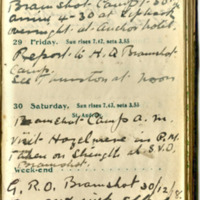 Bramshot Camp 1.30
arrive 4.30 at Liphook
overnight at Anchor hotel.
29 Friday. Sun rises 7.42, sets 3.55
Report to H.Q Bramshot
Camp.
See at noon
30 Saturday. Sun rises 7.43, sets 3.54
St. Andrew
Bramshot Camp a.m.
Visit Hazelmere in P.M.
Taken on Strength at S.V.D.
Bramshot.
Week-end
G.R.O. Bramshot 30/12/